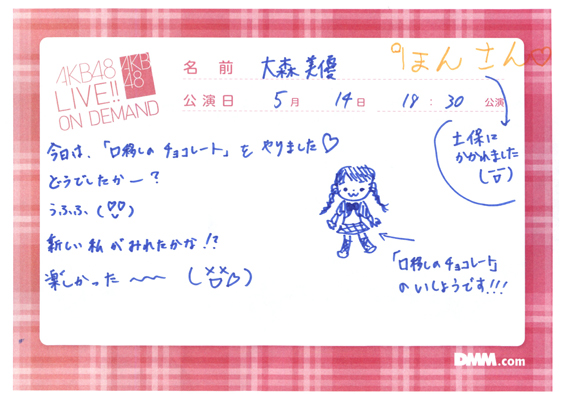 AKB48
LIVE!!
ON DEMAND
AKB
48
名前 大森美優
9まんさん♡
公演日 5月 14日 18:30 公演
土保に
かかれました
今日は、「口移しのチョコレート」を やりました♡
どうでしたかー?
うふふ (♡♡)
新しい私がみれたかな!?
楽しかった 〜〜 (××)
「口移しのチョコレート」
のいしょうです!!!
DMM.com